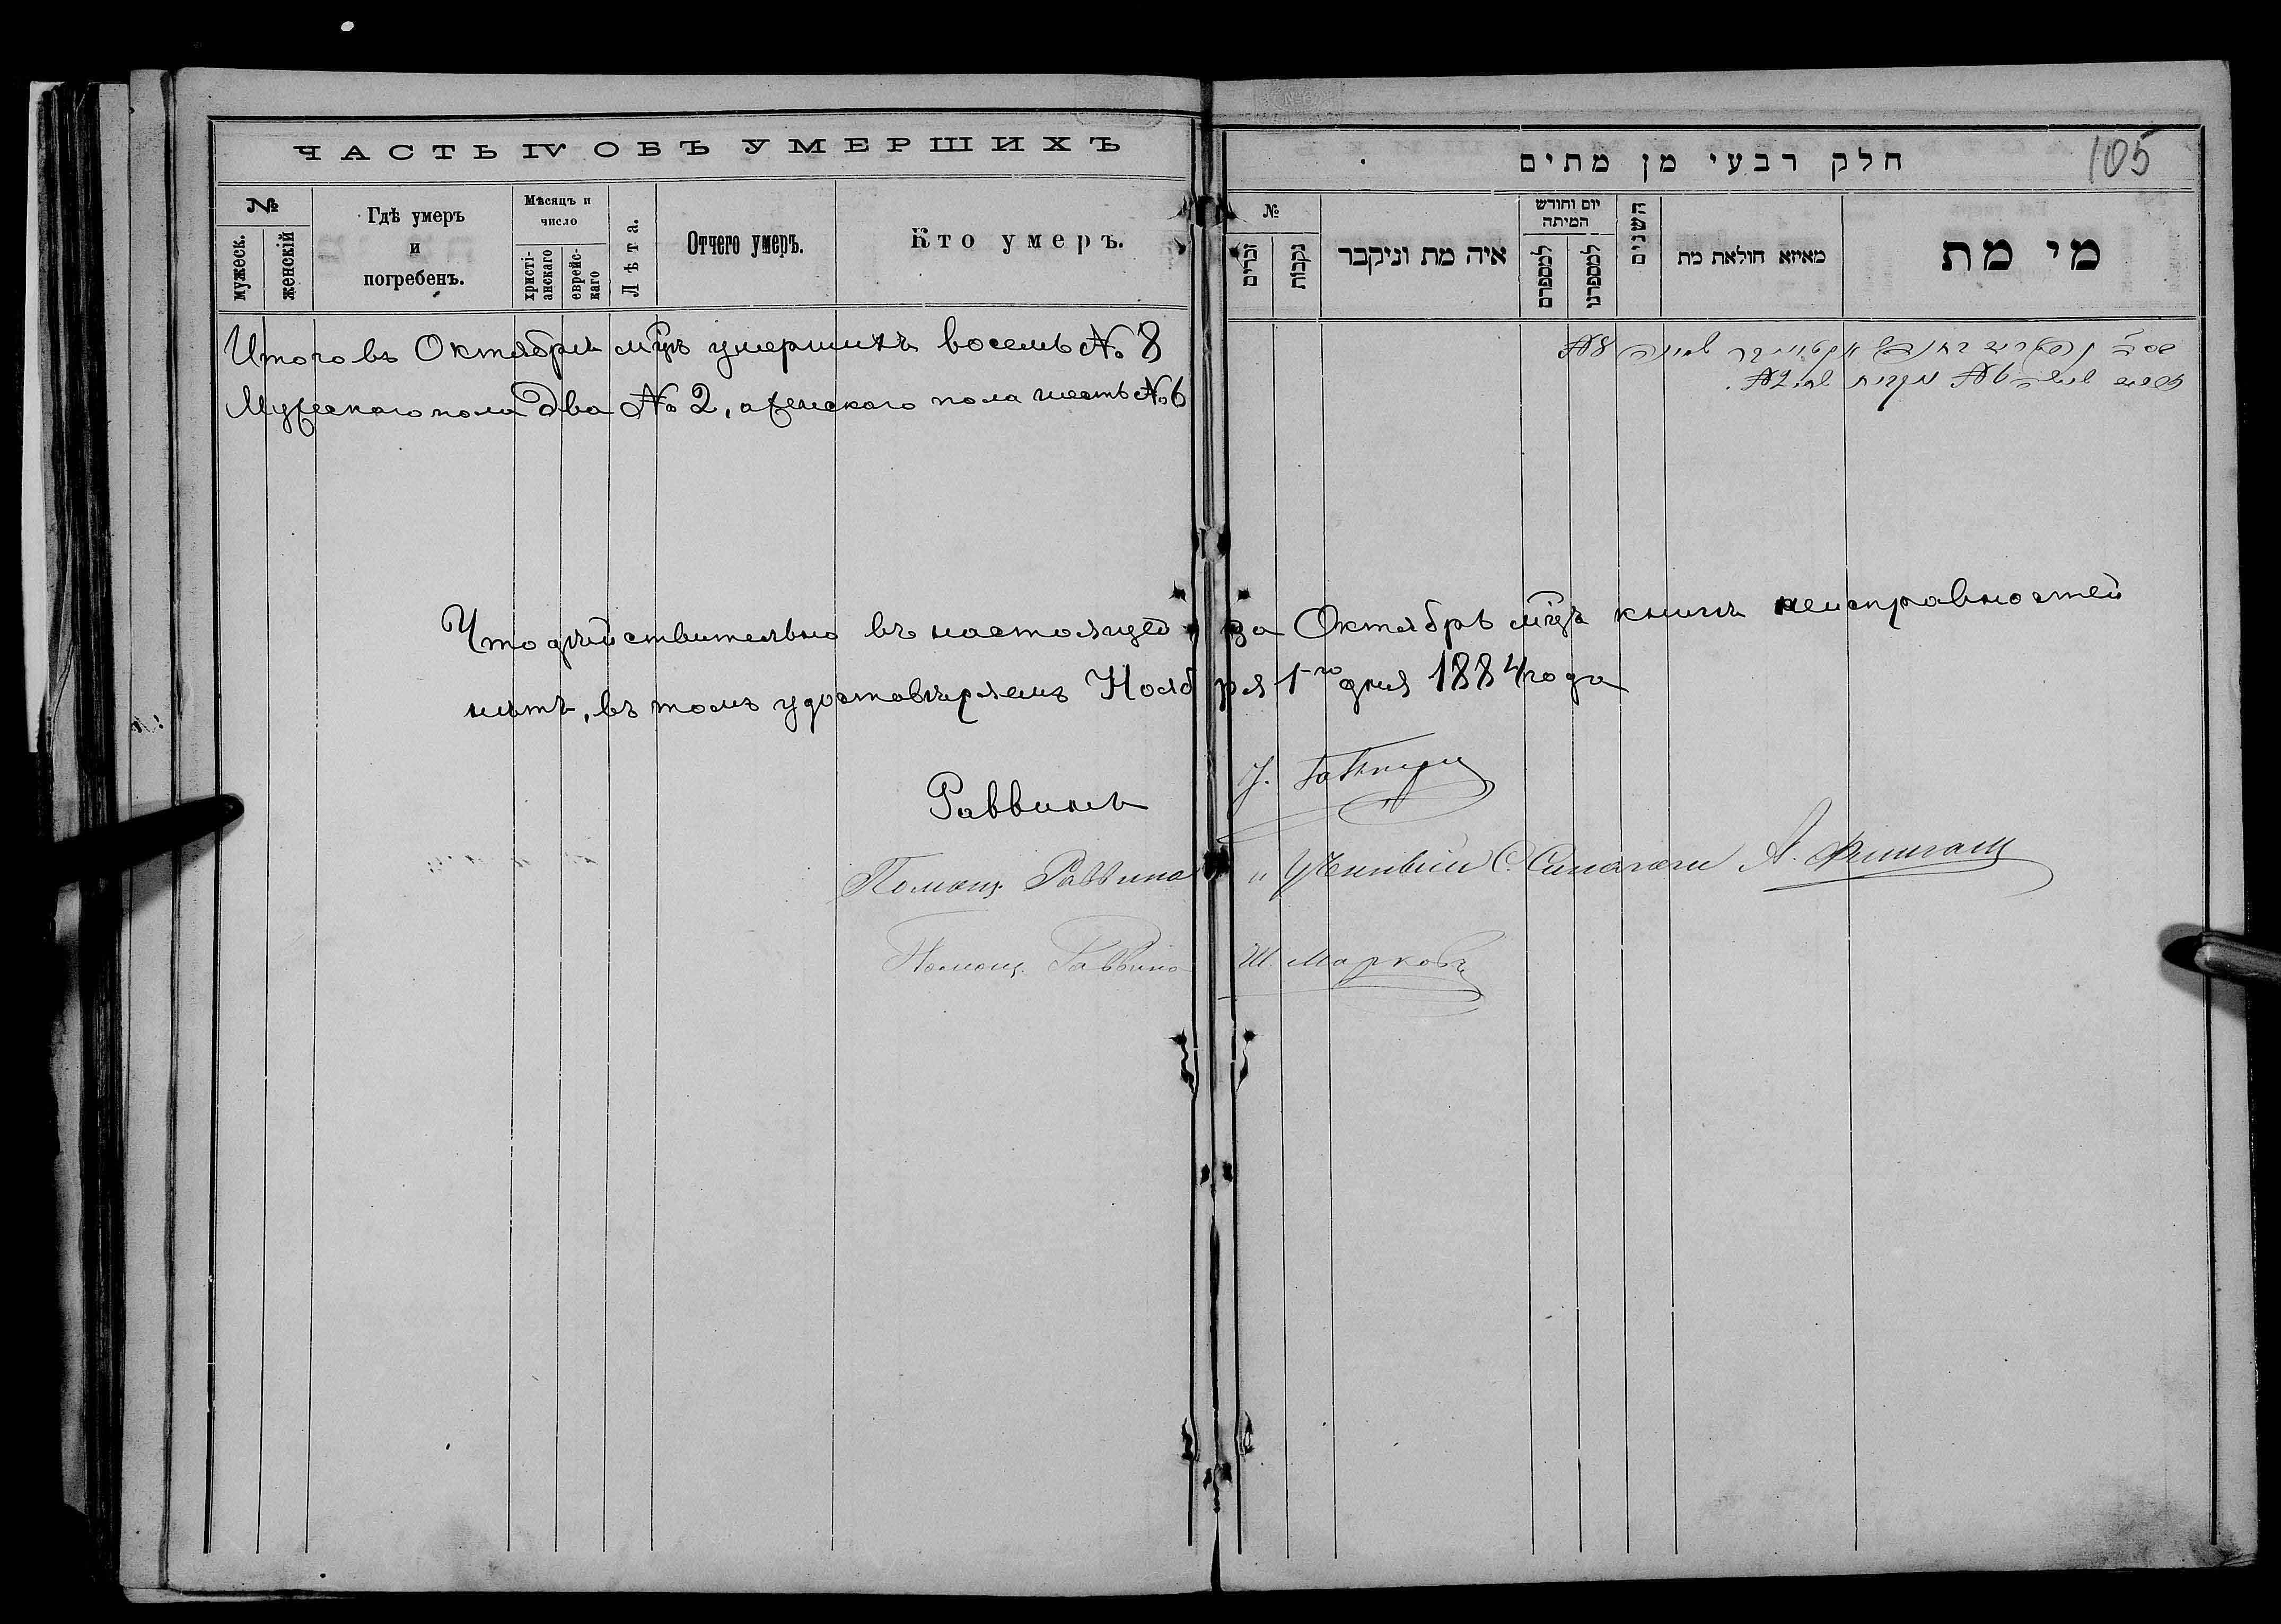 ЧАСТЬ IV ОБЪ УМЕРШИХЪ
№
мужеск.
женскій
Гдѣ умеръ
и
погребенъ.
Мѣсяцъ и
число
христі-
анскаго
еврейс-
каго
Лѣта.
Отчего умеръ.
Кто умеръ.
Итого въ Октябрѣ мцѣ умершихъ восемь № 8
Мужескаго пола два № 2, а женскаго пола шесть № 6
105
חלק רבעי מן מתים
№
זכרים
נקבות
איה מת וניקבר
יום וחודש
המיתה
למספרם
למספרנו
השנים
מאיזא חולאת מת
מי מת
№ 8
№ 6 №2
Что дѣйствительно въ настоящей за Октябрь мцъ книгѣ неисправностей
нѣтъ, въ томъ удостовѣряемъ Ноября 1-го дня 1884 года
Раввинъ
Помощ. Раввина и Ученый С. Синагоги А.
Помощ. Раввина Ш. Марковъ